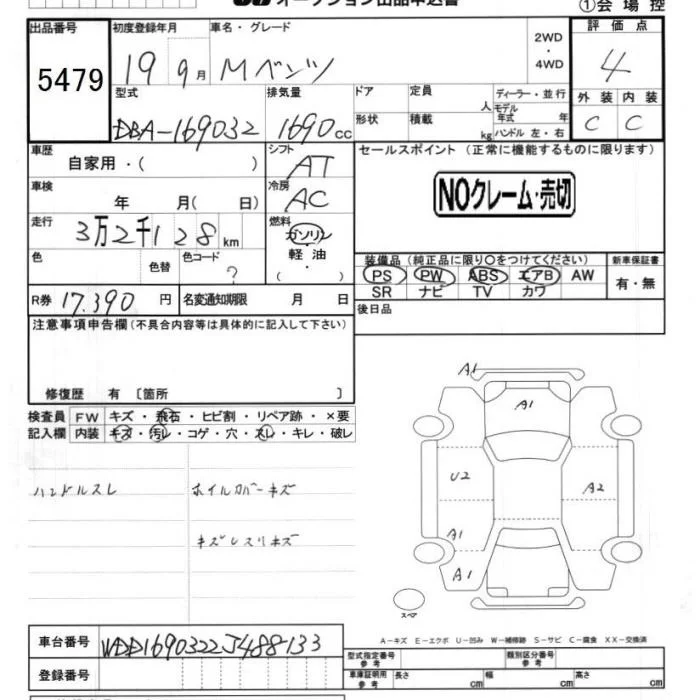 オークション出品申込書
①会場控
出品番号 初度登録年月 車名・グレード 評価点
5479 19 9月 Mベンツ 2WD・4WD 4
型式 排気量 ドア 定員 人 ディーラー・並行 外装 内装
DBA-169032 1690cc 形状 積載 kg モデル年式 年 ハンドル 左・右 C C
車歴 シフト セールスポイント(正常に機能するものに限ります)
自家用・( ) AT
車検 冷房 NOクレーム・売切
年 月( 日) AC
走行 燃料
3万2千128km ガソリン
色 色替 色コード ? 軽油 装備品(純正品に限り○をつけてください) 新車保証書
・ PS PW ABS エアB AW 有・無
( ) SR ナビ TV カワ
R券 17.390円 名変通知期限 月 日 後日品
注意事項申告欄(不具合内容等は具体的に記入して下さい)
修復歴 有 〔箇所 〕
検査員 FW キズ・飛石・ヒビ割・リペア跡・×要
記入欄 内装 キズ・汚レ・コゲ・穴・スレ・キレ・破レ
ハンドルスレ ホイルカバーキズ
A1
A1
U2 A2
A1
A1
スペア
A-キズ E-エクボ U-凹み W-補修跡 S-サビ C-腐食 XX-交換済
車台番号 WDD1690322J488133
型式指定番号 参考 類別区分番号 参考
登録番号 車庫証明用 参考 長さ cm 幅 cm 高さ cm